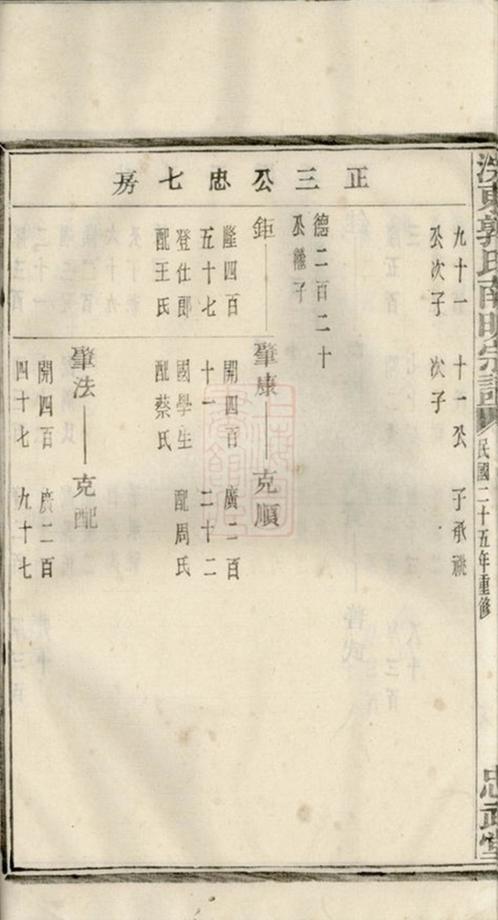 東郭氏南明宗譜 民國二十五年重修 忠武堂
正三公忠七房
九十一 十一公 子承祧
公次子 次子
德二百二十
公繼子
鉅 肇康 克順
隆四百 開四百 廣二百
五十七 十一 二十二
登仕郎 國學生 配周氏
配王氏 配蔡氏
肇法 克配
開四百 廣二百
四十七 九十七